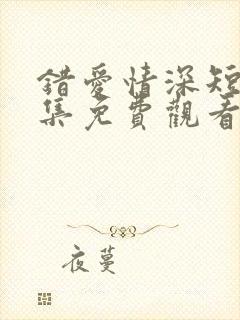 錯愛情深短
集免費觀看
夜蔓